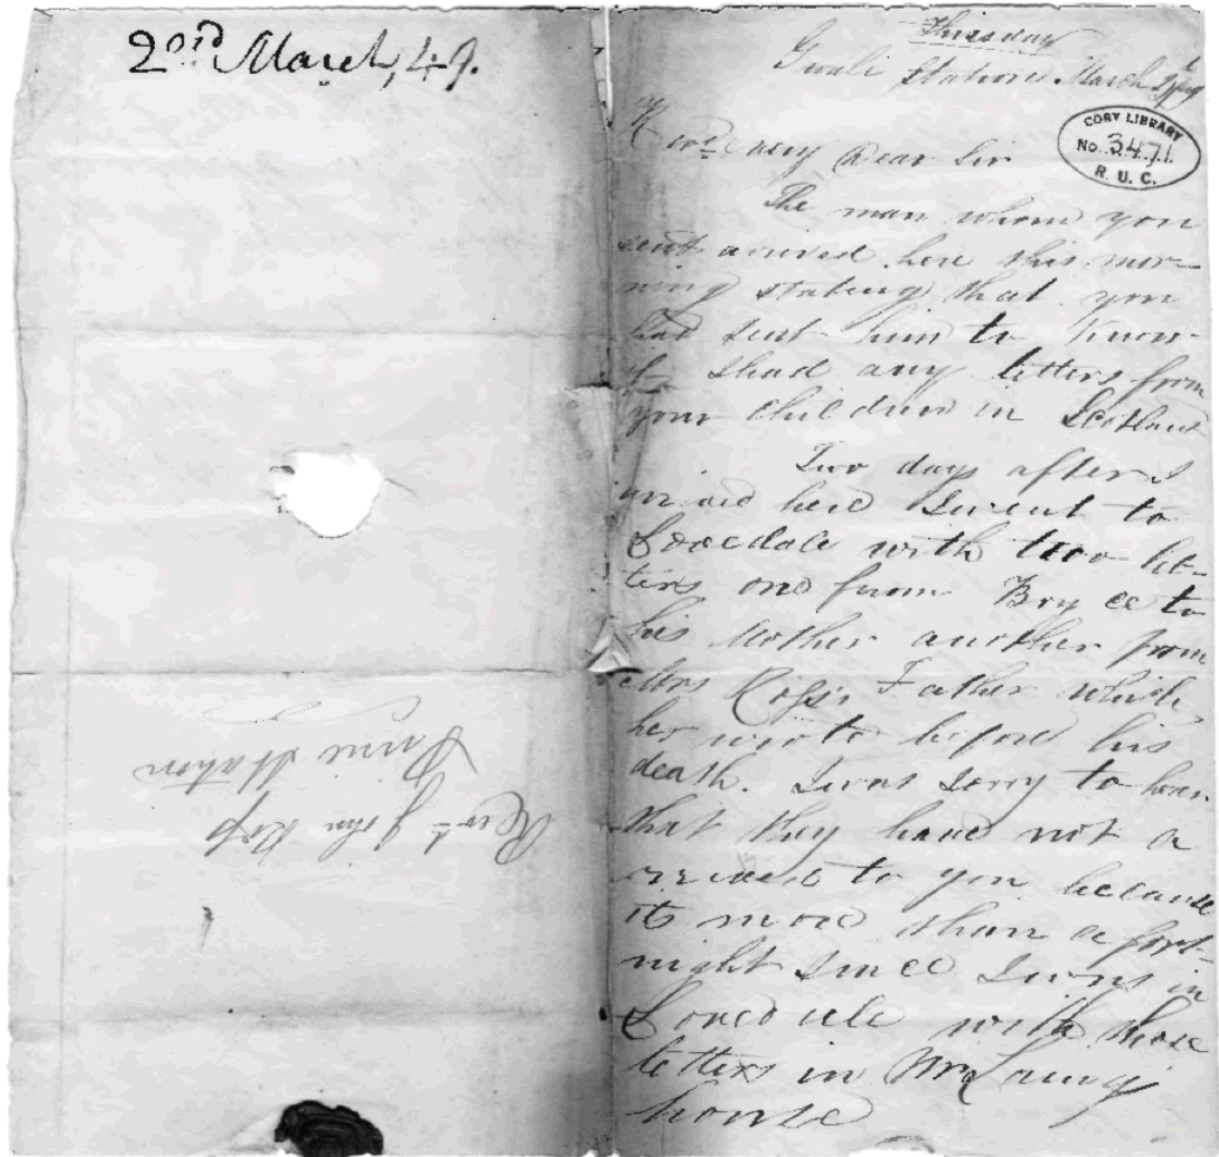 2nd March, 49.
Revd John Ross
Pirie Station
Thursday
Gwali Station March
CORY LIBRARY
No. 3471.
R. U. C.
Revd & very Dear Sir
The man whom you
sent arrived here this mor-
ning stating that you
had sent him to know
if I had any letters from
your children in Scotland
Two days after I
arrived here I went to
Lovedale with two let-
ters one from Bryce to
his Mother another from
Mrs Ross's Father which
he wrote before his
death. I was sorry to hear
that they have not a
rrived to you because
its more than a fort-
night since I was in
Lovedale with those
letters in Mr Laing
house